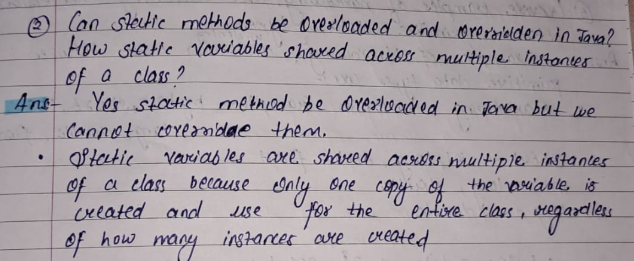 ② Can static methods be overloaded and overridden in Java?
How static variables shared across multiple instances
of a class?
Ans- Yes static method be overloaded in Java but we
cannot overridde them.
• Static variables are shared across multiple instances
of a class because only one copy of the variable is
created and use for the entire class, regardless
of how many instances are created